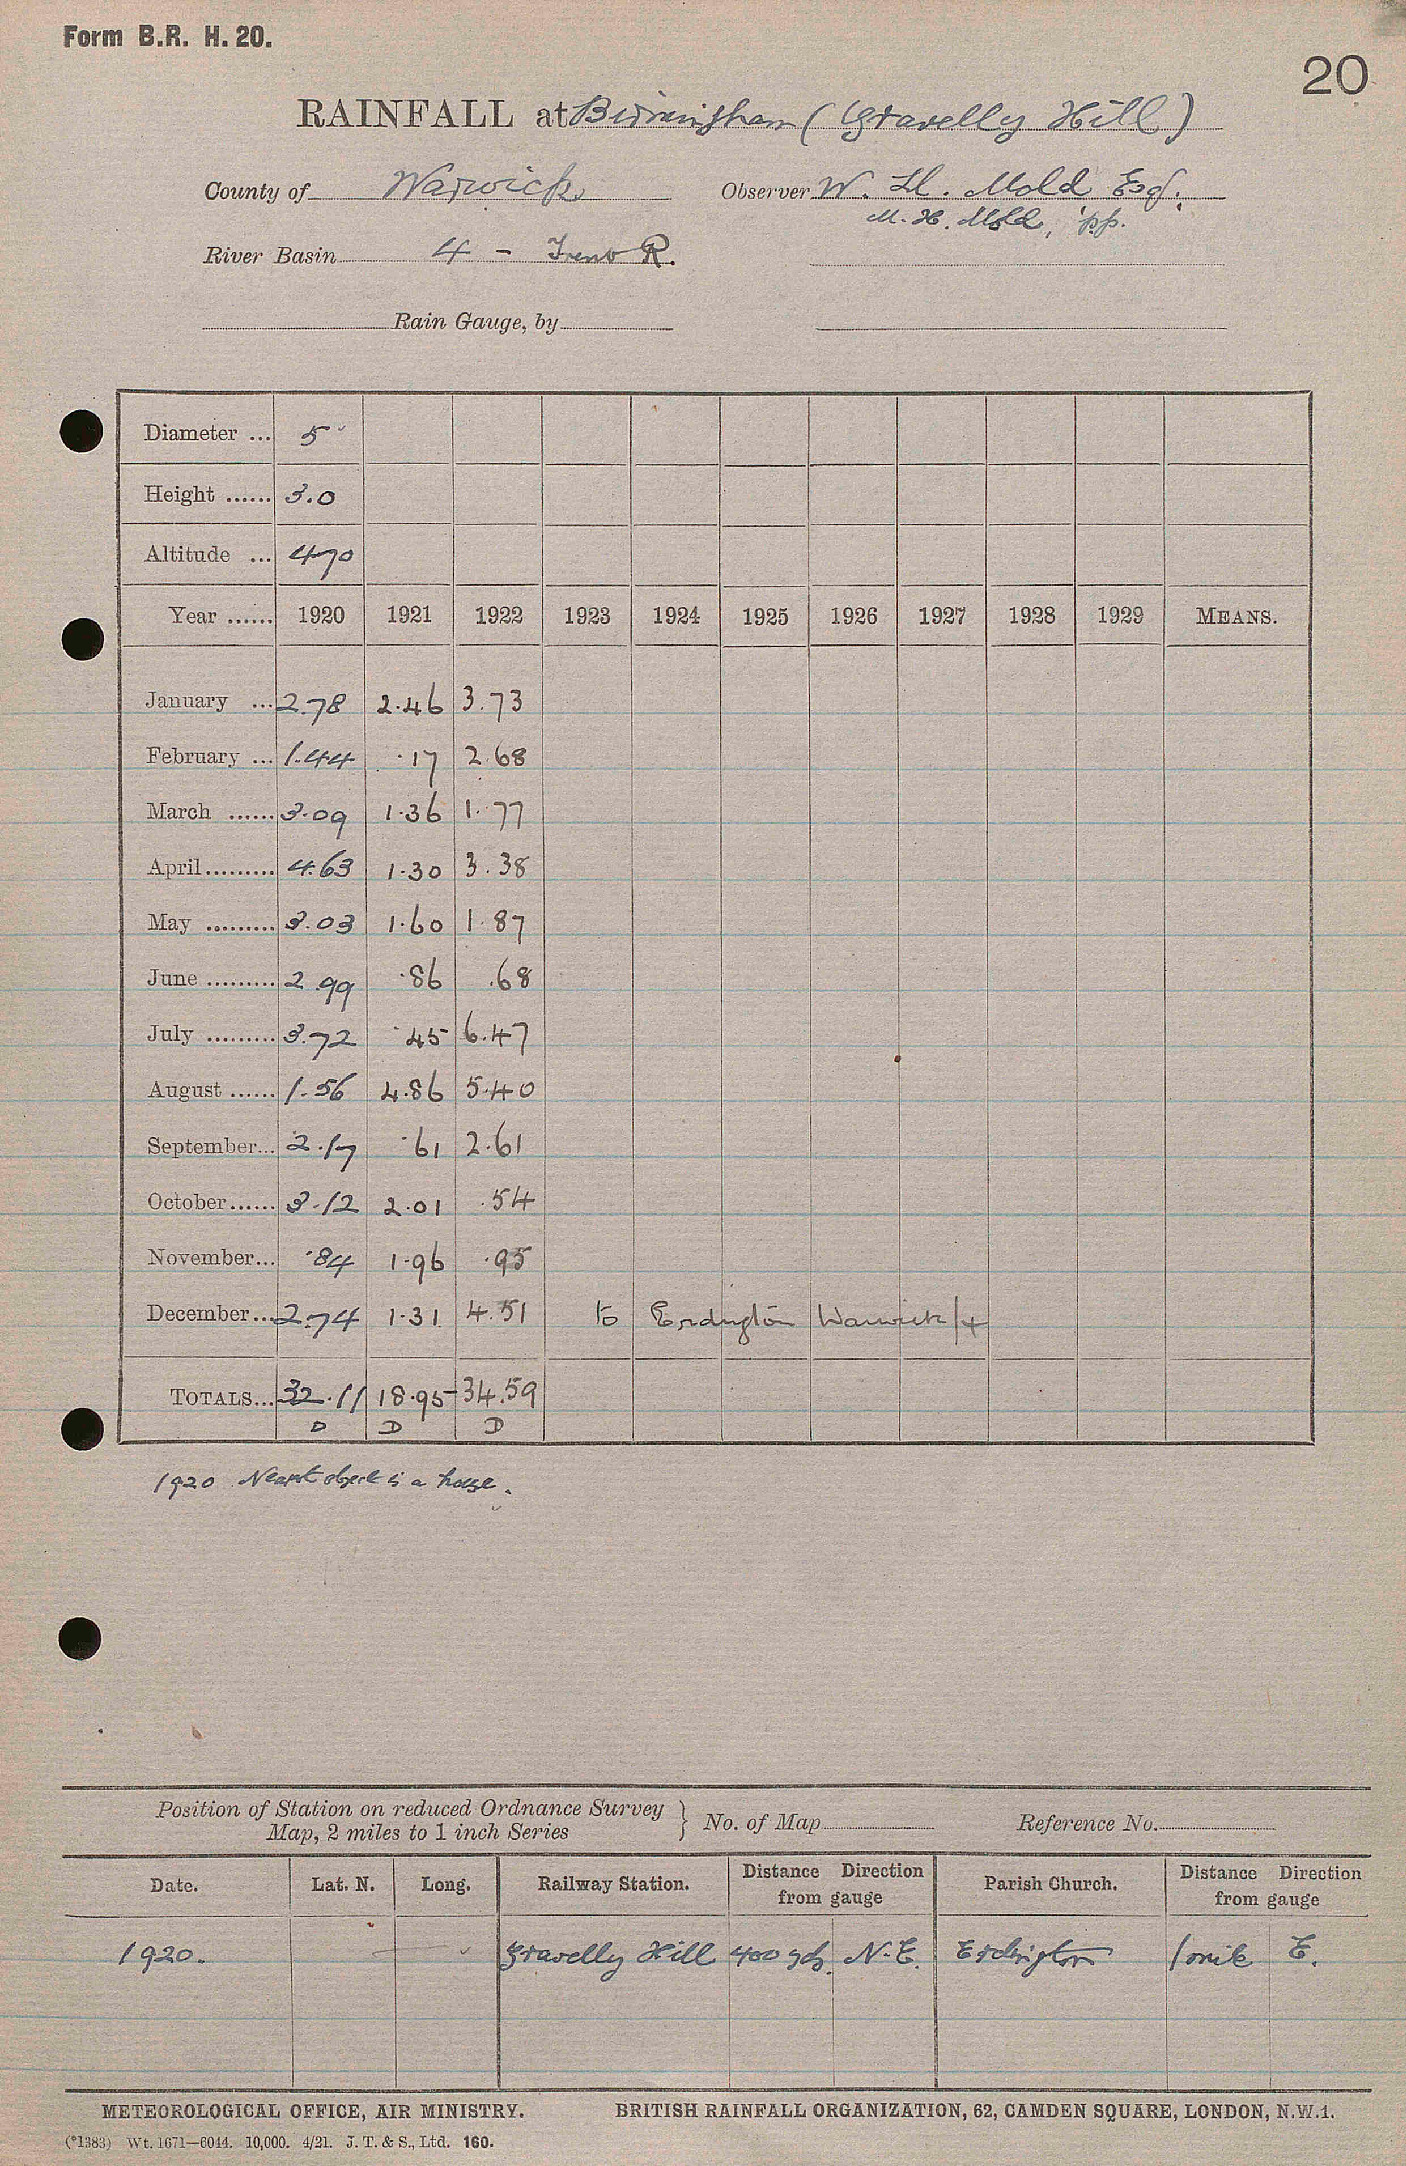 Form B.R. H. 20.
20
RAINFALL at Birmingham (Gravelly Hill)
County of Warwick Observer W. H. Mold Esq.
M. H. Mold, pp.
River Basin 4 - Trent R.
Rain Gauge, by
Diameter ... 5
Height ...... 3.0
Altitude ... 470
Year ...... 1920 1921 1922 1923 1924 1925 1926 1927 1928 1929 MEANS.
January ... 2.78 2.46 3.73
February ... 1.44 .17 2.68
March ...... 3.09 1.36 1.77
April......... 4.63 1.30 3.38
May ......... 3.03 1.60 1.87
June ......... 2.99 .86 .68
July ......... 3.72 .45 6.47
August ...... 1.56 4.86 5.40
September... 2.17 .61 2.61
October...... 3.12 2.01 .54
November... .84 1.96 .95
December... 2.74 1.31 4.51 to Erdington Warwick/4
TOTALS... 32.11 18.95 34.59
D D D
1920 Nearest object is a house.
Position of Station on reduced Ordnance Survey
Map, 2 miles to 1 inch Series } No. of Map Reference No.
Date. Lat. N. Long. Railway Station. Distance Direction from gauge Parish Church. Distance Direction from gauge
1920. Gravelly Hill 400 yds. N.E. Erdington 1 mile E.
METEOROLOGICAL OFFICE, AIR MINISTRY. BRITISH RAINFALL ORGANIZATION, 62, CAMDEN SQUARE, LONDON, N.W.1.
(*1383) Wt. 1671—6044. 10,000. 4/21. J. T. & S., Ltd. 160.